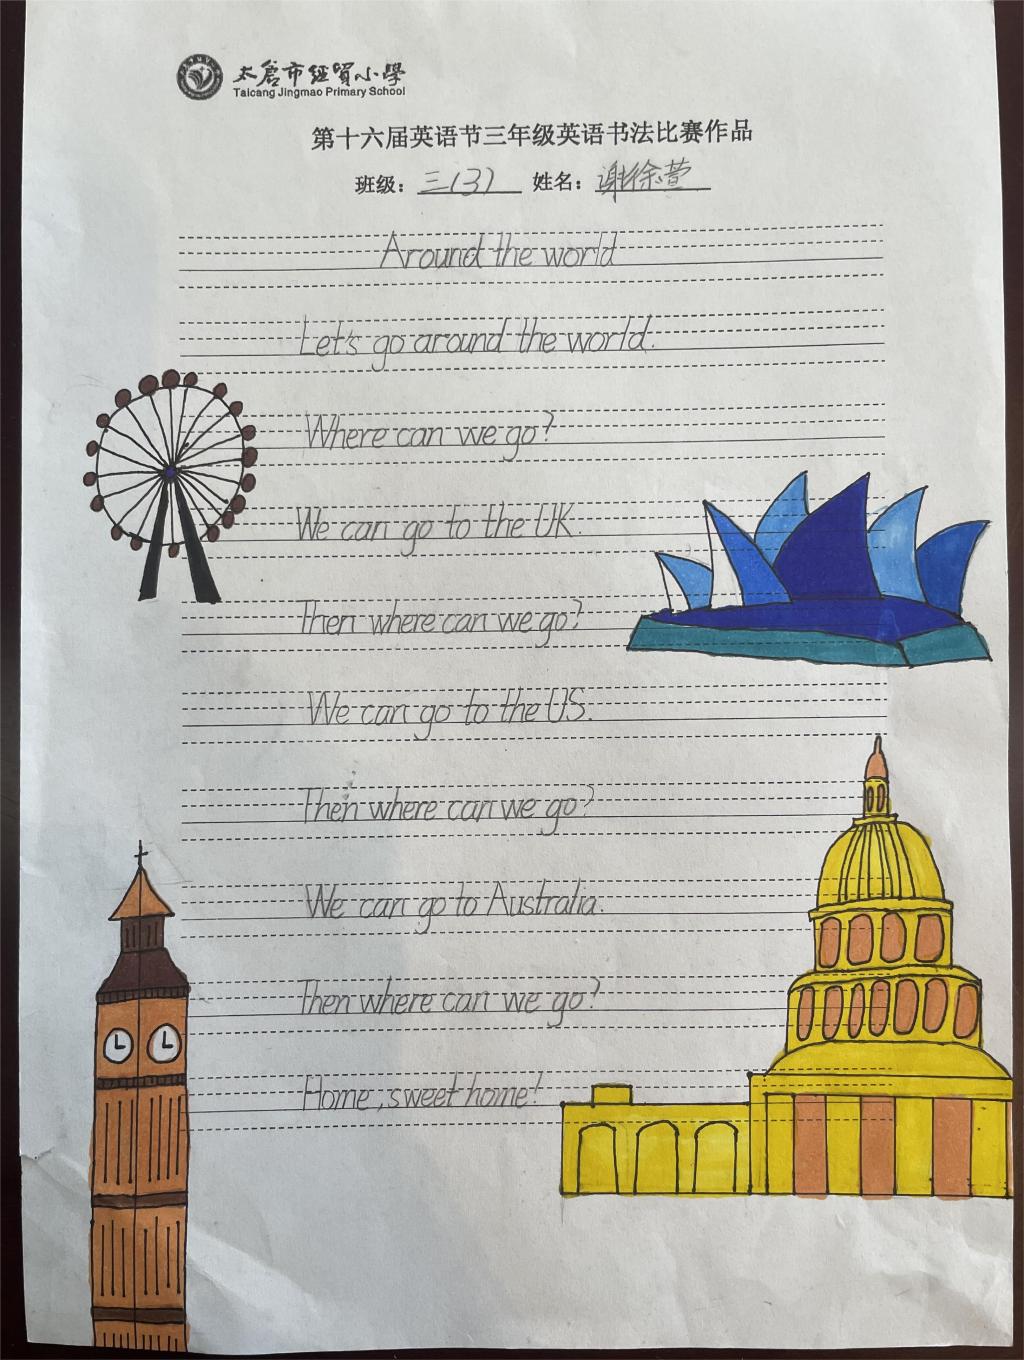 太倉市经贸小學
Taicang Jingmao Primary School
第十六届英语节三年级英语书法比赛作品
班级：三(3) 姓名：谢徐萱
Around the world
Let's go around the world.
Where can we go?
We can go to the UK.
Then where can we go?
We can go to the US.
Then where can we go?
We can go to Australia.
Then where can we go?
Home, sweet home!